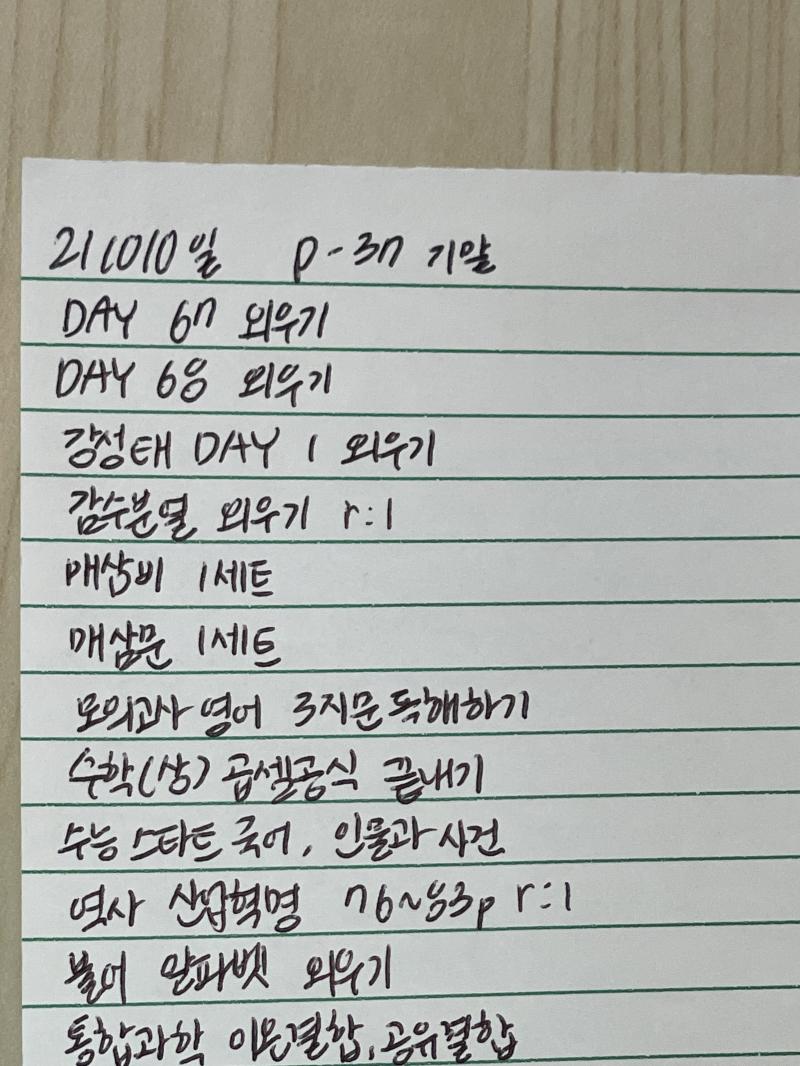 211010일 D-37 기말
DAY 67 외우기
DAY 68 외우기
강성태 DAY 1 외우기
감수분열 외우기 r:1
매삼비 1세트
매삼문 1세트
모의고사 영어 3지문 독해하기
수학(상) 곱셈공식 끝내기
수능 스타트 국어, 인물과 사건
역사 산업혁명 76~83p r:1
불어 알파벳 외우기
통합과학 이온결합, 공유결합